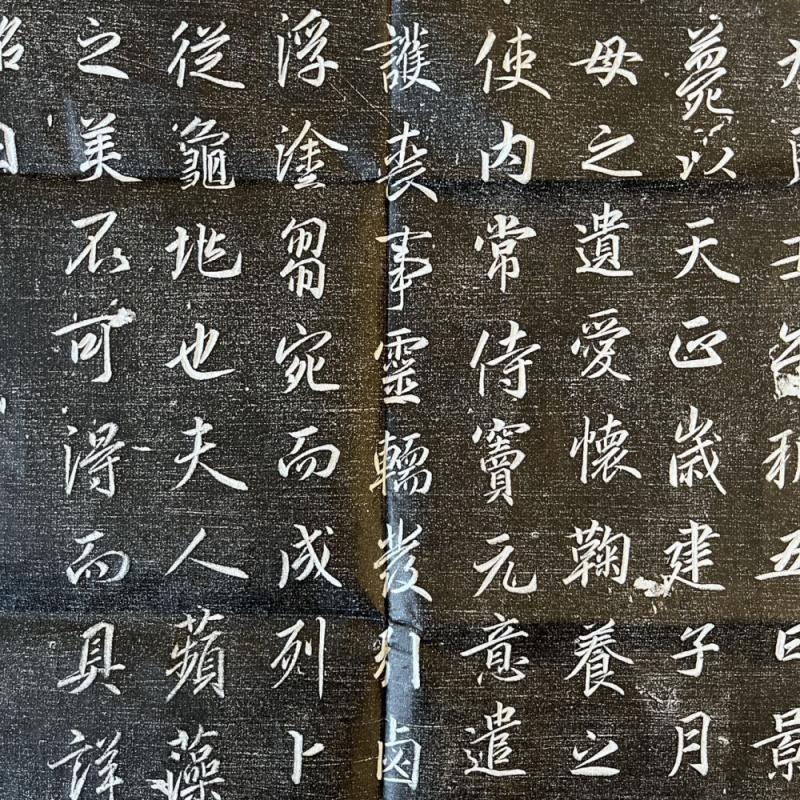 五日景
薨以天正歲建子月
母之遺愛懷鞠養之
使内常侍竇元意遣
護喪事靈轜發引鹵
浮塗芻宛而成列卜
從龜地也夫人蘋藻
之美不可得而具詳